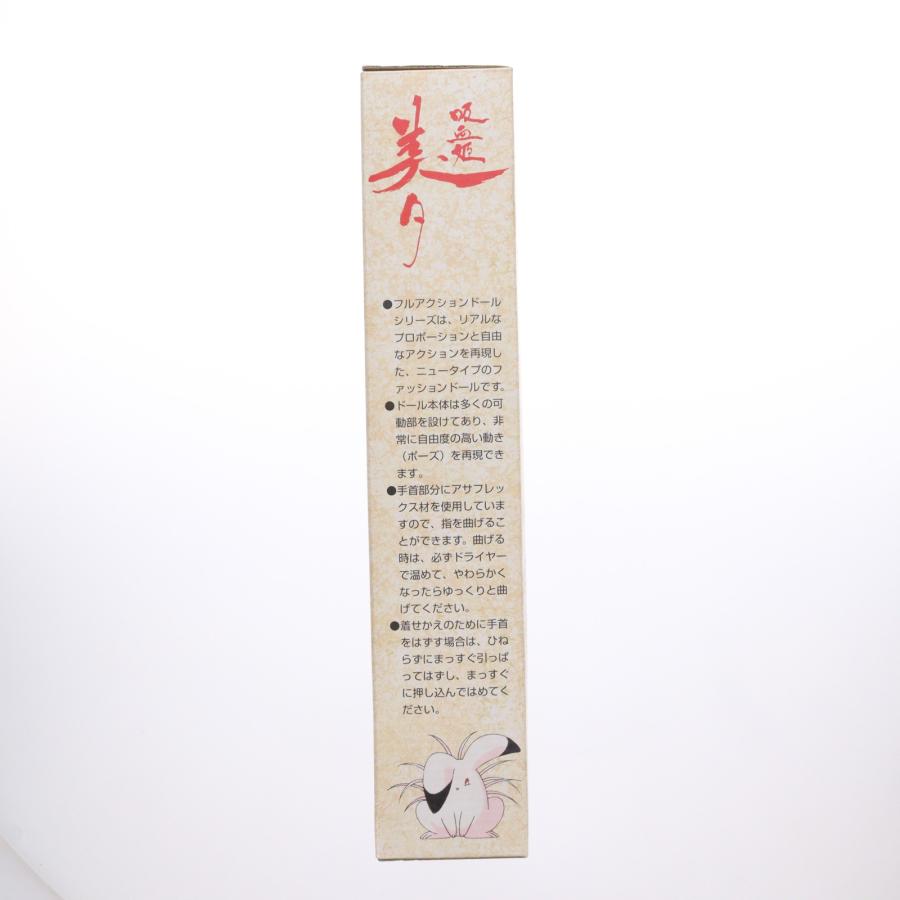 吸血姫
美夕
●フルアクションドール
シリーズは、リアルな
プロポーションと自由
なアクションを再現し
た、ニュータイプのフ
ァッションドールです。
●ドール本体は多くの可
動部を設けてあり、非
常に自由度の高い動き
（ポーズ）を再現でき
ます。
●手首部分にアサフレッ
クス材を使用していま
すので、指を曲げるこ
とができます。曲げる
時は、必ずドライヤー
で温めて、やわらかく
なったらゆっくりと曲
げてください。
●着せかえのために手首
をはずす場合は、ひね
らずにまっすぐ引っぱ
ってはずし、まっすぐ
に押し込んではめてく
ださい。